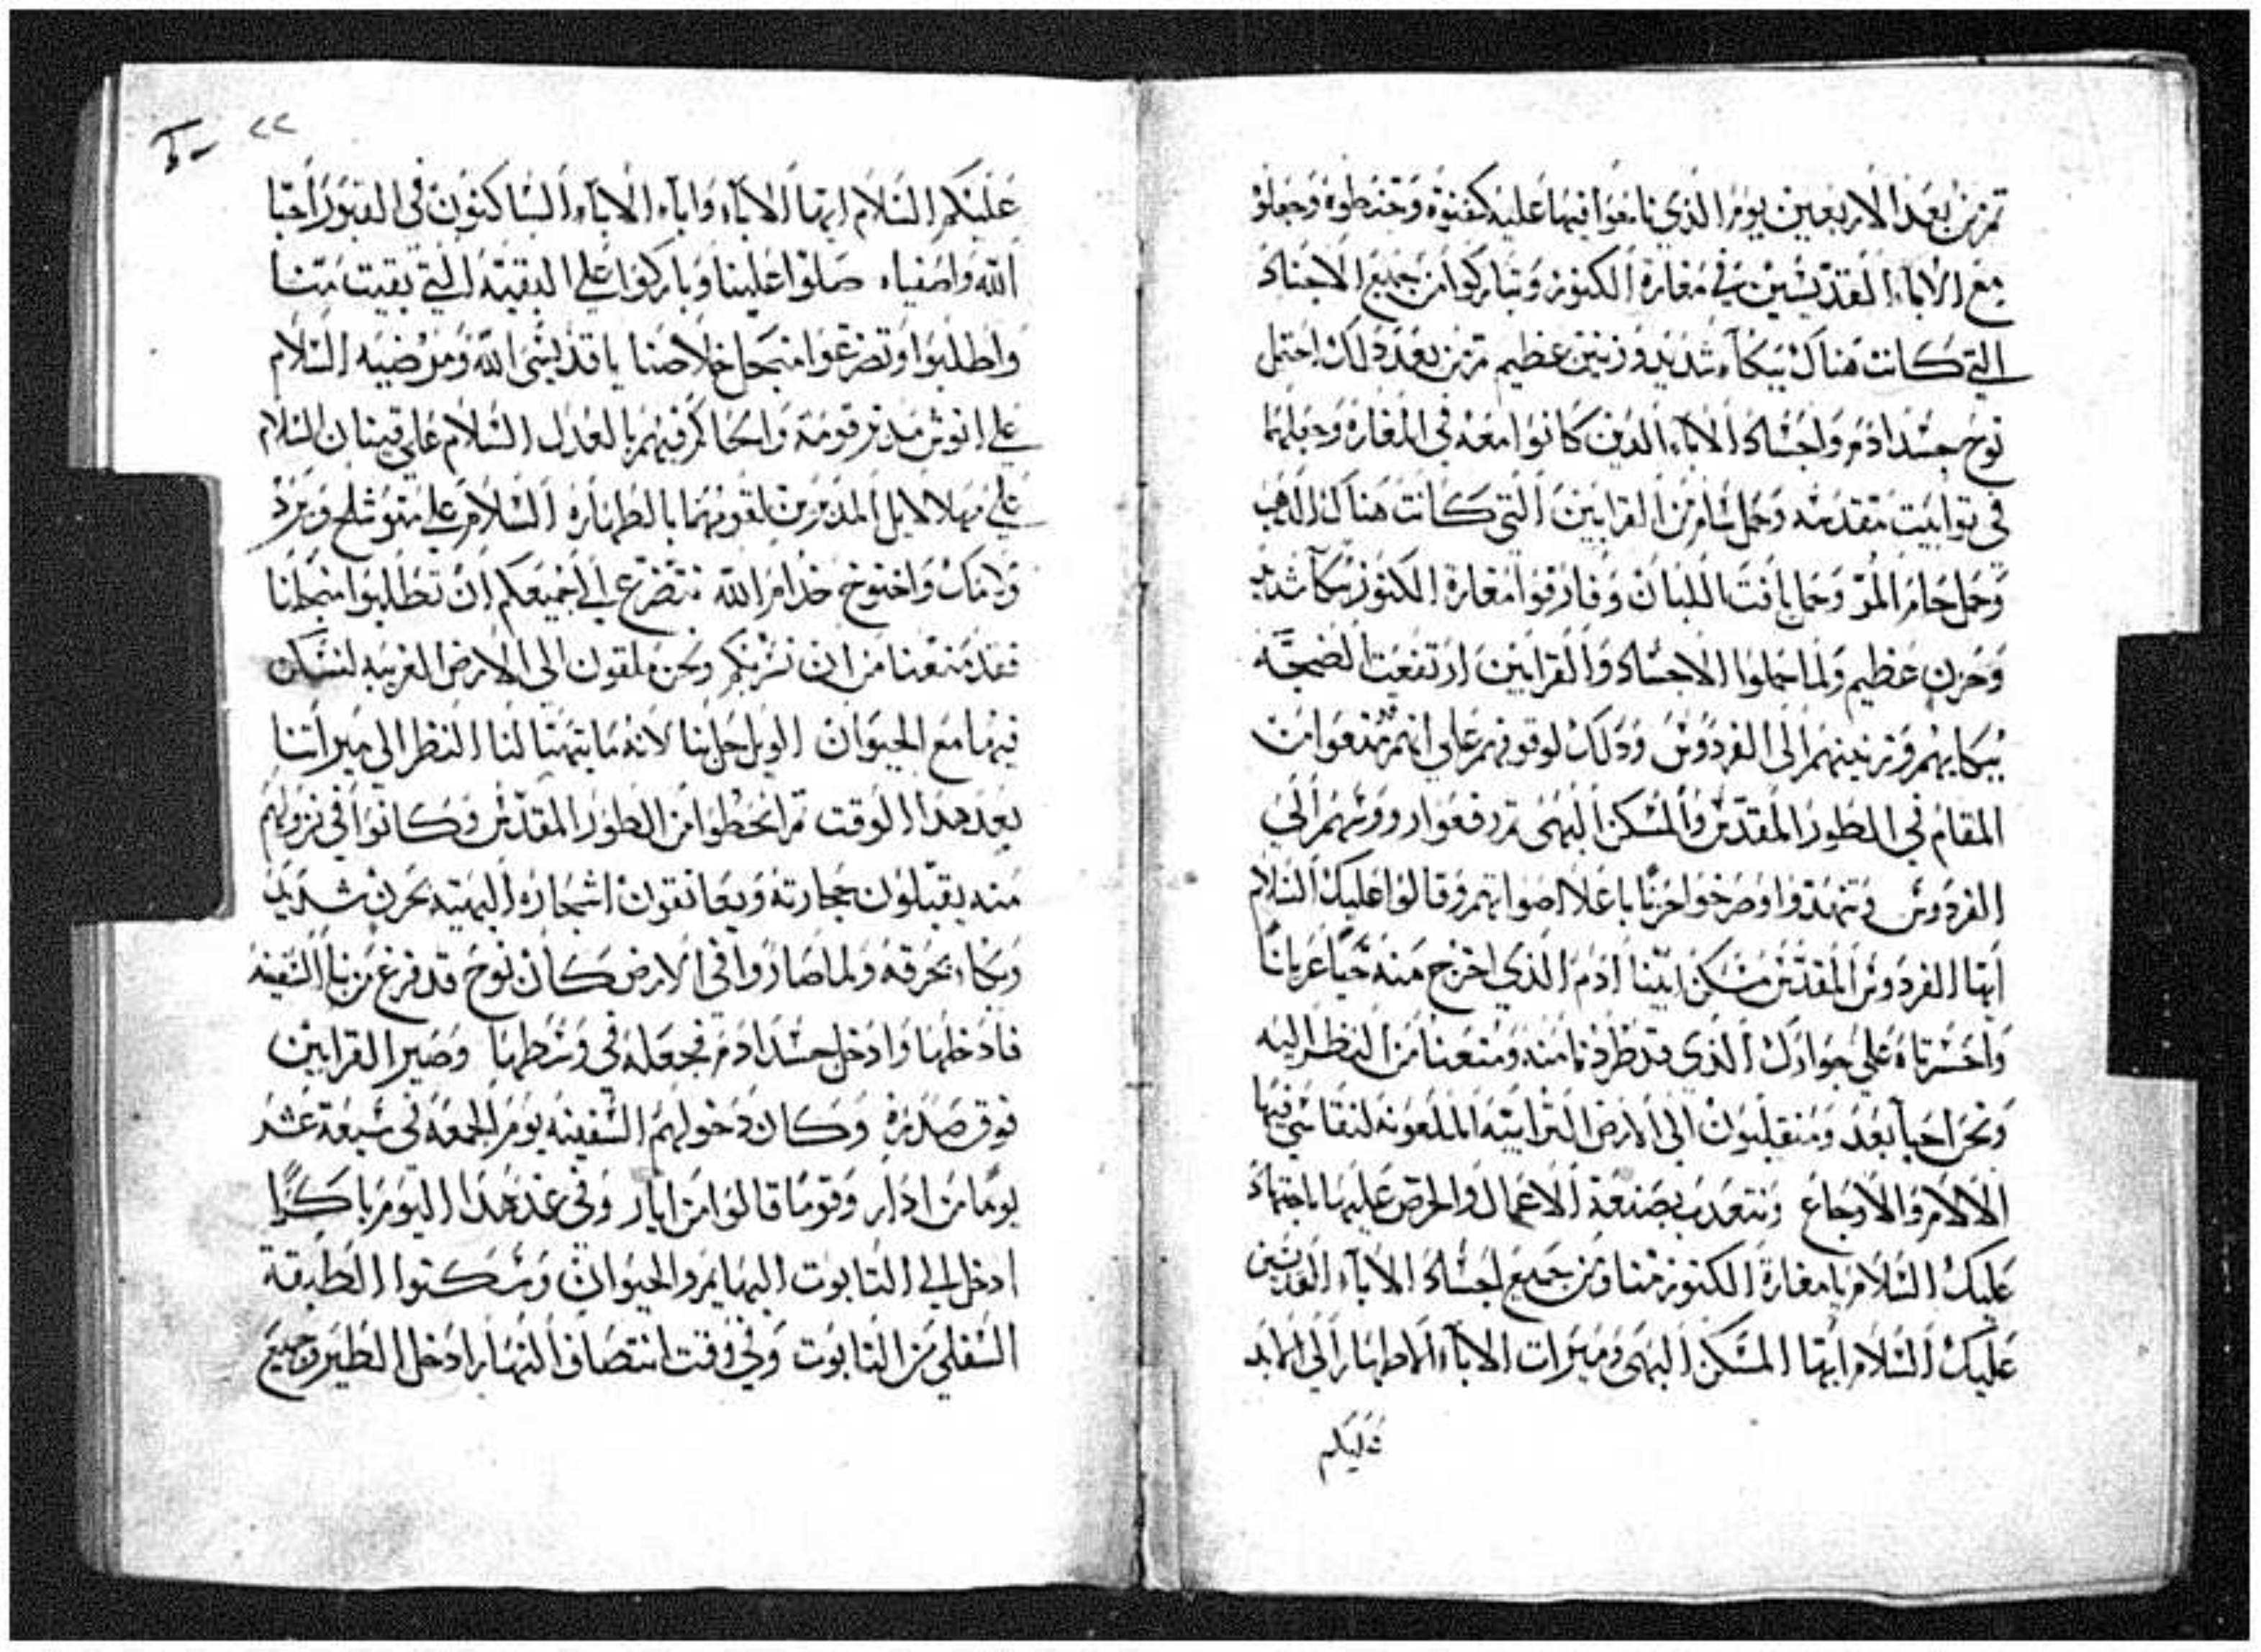 تم من بعد الاربعين يوم الذي ناحوا فيها عليه كفنوه وحنطوه وجعلوه
مع الاباء القديسين في مغارة الكنوز وتباركوا من جميع الاجساد
التي كانت هناك ببكاء شديد وزنين عظيم تم من بعد دلك احتمل
نوح جسد ادم واجساد الاباء الدين كانوا معه في المغارة وجعلهما
في توابيت مقدسه وحمل سام من القرابين التي كانت هناك الدهب
وحمل حام المر وحمل يافت اللبان وفارقوا مغارة الكنوز ببكآ شديد
وحزن عظيم ولما حملوا الاجساد والقرابين ارتفعت الضجه
ببكايهم وزنينهم الى الفردوس ودلك لوقوفهم على انهم قد منعوا من
المقام في الطور المقدس والمسكن البهي تم رفعوا رووسهم الى
الفردوس وتنهدوا وصرخوا حزنا باعلا اصواتهم وقالوا عليك السلام
ايها الفردوس المقدس مسكن ابينا ادم الذي اخرج منه حيا عريانا
واحسرتاه على جوارك الذي قد طردنا منه ومنعنا من النظر اليه
ونحن احيآ بعد ومنقلبون الى الارض الترابيه الملعونه لنقاسي فيها
الالام والاوجاع ونتعدب بصنعة الاعمال والحرص عليها باجتهاد
عليك السلام يا مغارة الكنوز منا ومن جميع اجساد الابآء القديسين
عليك السلام ايها المسكن البهي وميرات الابآء الاطهار الى الابد
عليكم
٢٢
عليكم السلام ايها الاباء واباء الاباء الساكنون في القبور احبا
الله واصفياه صلوا علينا وباركوا على البقيه التي بقيت منا
واطلبوا وتضرعوا من اجل خلاصنا يا قديسي الله ومرضيه السلام
على انوش مدبر قومه والحاكم فيهم بالعدل السلام على قينان السلام
على مهلالايل المدبرين لقومهما بالطهاره السلام على متوشلح ويرد
ولامك واخنوخ خدام الله نتضرع الى جميعكم ان تطلبوا من اجلنا
فقد منعنا من ان نريكم ونحن ملقون الى الارض الغريبه لنسكن
فيها مع الحيوان الويل حل بنا لانه ما يتهيا لنا النظر الى ميراتنا
بعد هدا الوقت تم انحطوا من الطور المقدس وكانوا في نزولهم
منه يقبلون حجارته ويعانقون اشجاره البهيه بحزن شديد
وبكاء بحرقه ولما صاروا في الارض كان نوح قد فرغ من بنا السفينه
فادخلها وادخل جسد ادم فجعله في وسطها وصير القرابين
فوق صدره وكان دخولهم السفينه يوم الجمعه في سبعة عشر
يوما من ادار وقوما قالوا من ايار وفي غد هدا اليوم باكرا
ادخل الى التابوت البهايم والحيوان وسكنوا الطبقة
السفلي من التابوت وفي وقت انتصاف النهار ادخل الطير وجميع